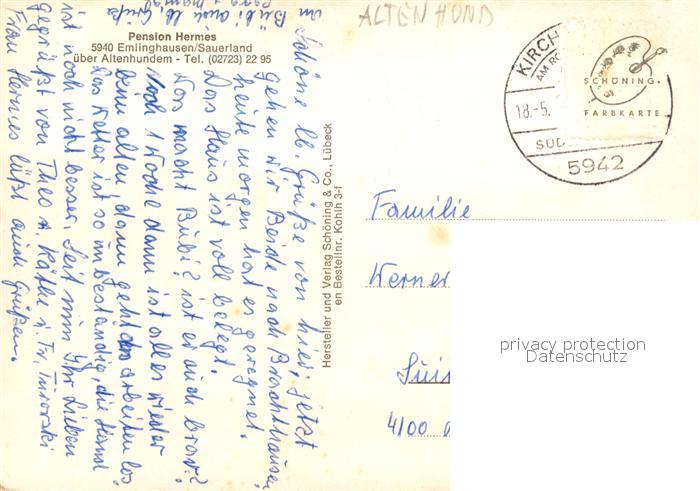 ALTENHUND
Pension Hermes
5940 Emlinghausen/Sauerland
über Altenhundem - Tel. (02723) 22 95
KIRCH
AM RO
18.-5.
SÜD
5942
SCHÖNING.
FARBKARTE
Hersteller und Verlag Schöning & Co., Lübeck
en Bestellnr. Kohlh 3-f
Schöne lb. Grüße von hier, jetzt
gehen wir Beide nach Brachthausen,
heute morgen hat es geregnet.
Das Haus ist voll belegt.
Was macht Bubi? ist er auch brav?
Noch 1 Woche dann ist alles wieder
beim alten, dann geht das arbeiten los
Das Wetter ist so unbeständig, die Hand
ist noch nicht besser. Seit nun Ihr Lieben
gegrüßt von Theo u. Käthe u. Fr.
Frau Hermes läßt auch Grüßen.
Bubi auch lb. Grüße
Familie
Werner
4100
privacy protection
Datenschutz